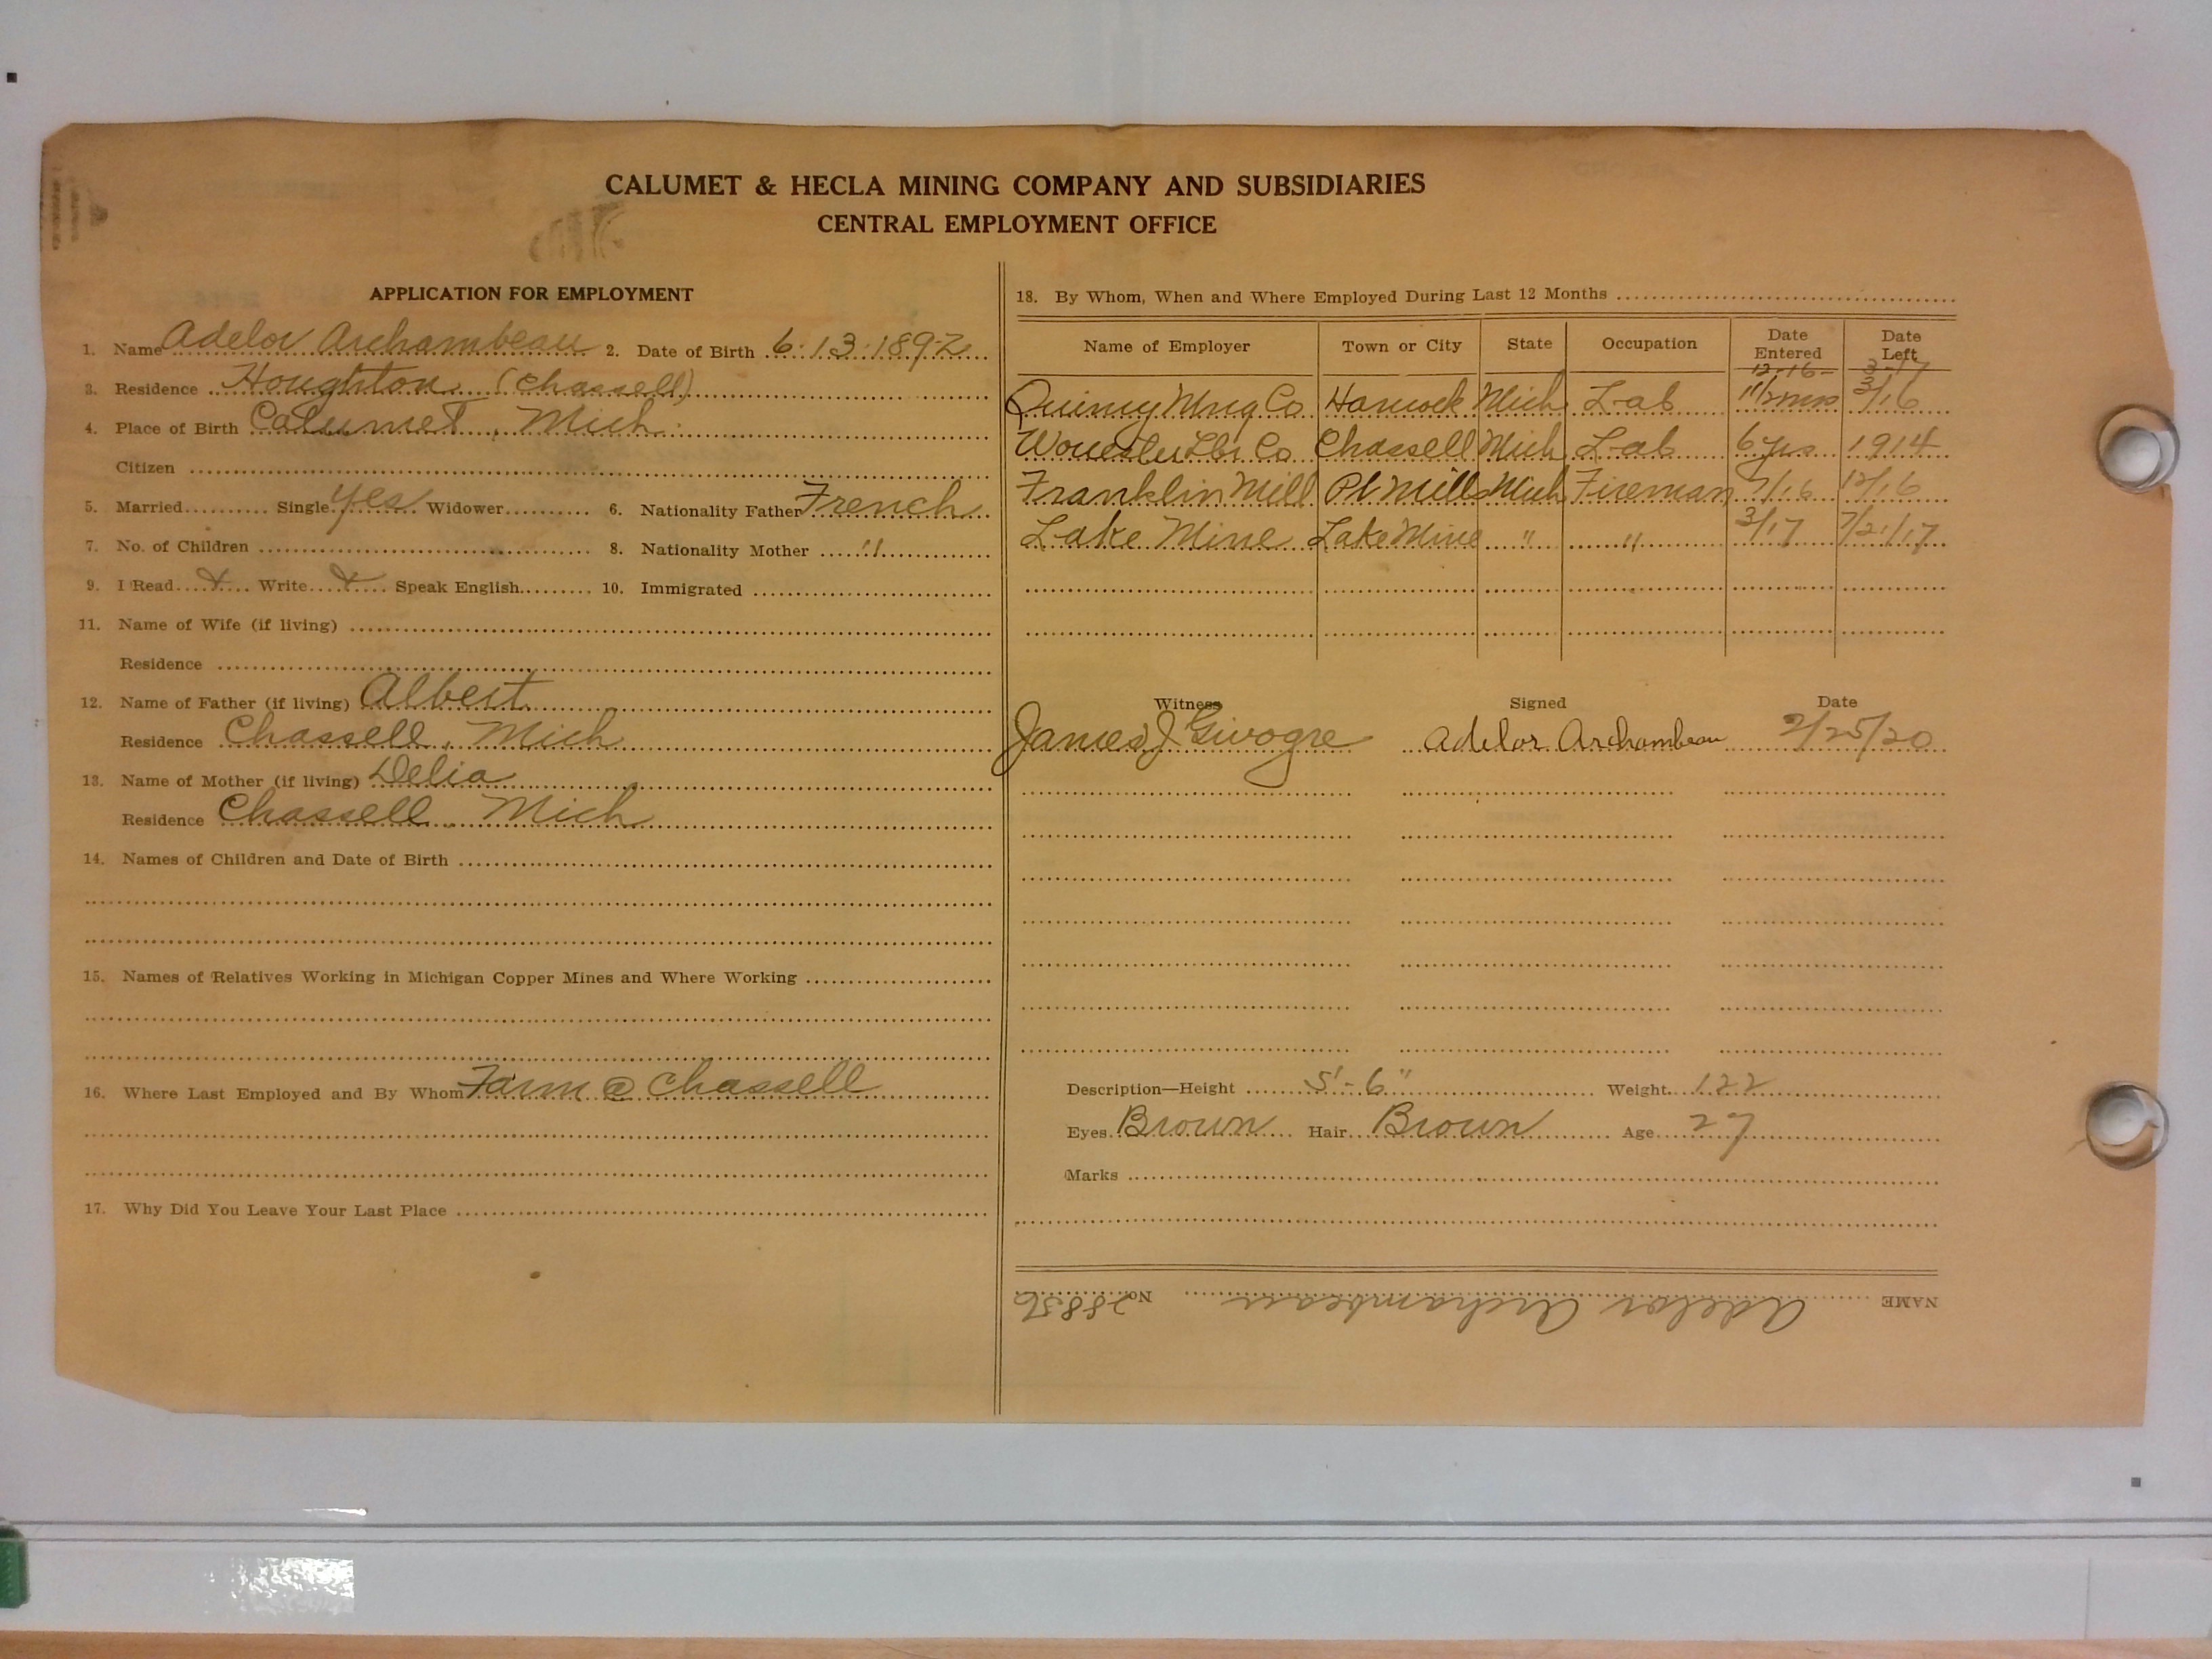 CALUMET & HECLA MINING COMPANY AND SUBSIDIARIES
CENTRAL EMPLOYMENT OFFICE
APPLICATION FOR EMPLOYMENT
1. Name Adelor Archambeau 2. Date of Birth 6-13-1892
3. Residence Houghton (Chassell)
4. Place of Birth Calumet, Mich.
Citizen
5. Married Single yes Widower 6. Nationality Father French
7. No. of Children 8. Nationality Mother "
9. I Read X Write X Speak English 10. Immigrated
11. Name of Wife (if living)
Residence
12. Name of Father (if living) Albert
Residence Chassell, Mich
13. Name of Mother (if living) Delia
Residence Chassell, Mich
14. Names of Children and Date of Birth
15. Names of Relatives Working in Michigan Copper Mines and Where Working
16. Where Last Employed and By Whom Farm @ Chassell
17. Why Did You Leave Your Last Place
18. By Whom, When and Where Employed During Last 12 Months
Name of Employer Town or City State Occupation Date Entered Date Left
12-16- 3-17
Quincy Mng Co Hancock Mich Lab 3/16
Worcester Lbr Co Chassell Mich Lab 6 yrs 1914
Franklin Mill Pt Mills Mich Fireman 7/16 12/16
Lake Mine Lake Mine " " 3/17 7/21/17
Witness Signed Date
James J Givogre Adelor Archambeau 2/25/20
Description—Height 5'-6" Weight 122
Eyes Brown Hair Brown Age 27
Marks
NAME Adelor Archambeau No. 28856